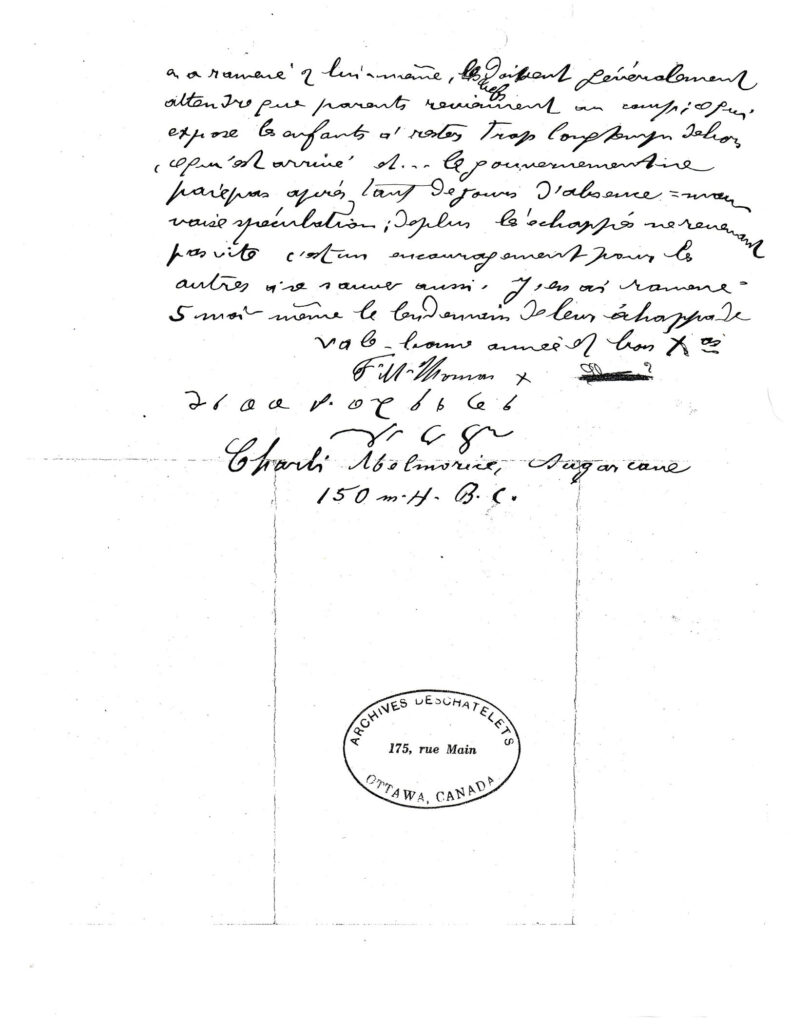 a ramené 2 lui-même, les chefs doivent généralement
attendre que parents reviennent au camp; ce qui
expose les enfants à rester trop longtemps dehors
ce qu'est arrivé et... le gouvernement ne
paie pas après tant de jours d'absence = mau
vaise spéculation; de plus les échappés ne revenant
pas vite c'est un encouragement pour les
autres à se sauver aussi. J'en ai ramené
5 moi-même le lendemain de leur échappade
Vale - bonne année et bon Xas
F. M. Thomas x
Charli, Sugarcane
150 m. H. B. C.
ARCHIVES DESCHATELETS
175, rue Main
OTTAWA, CANADA